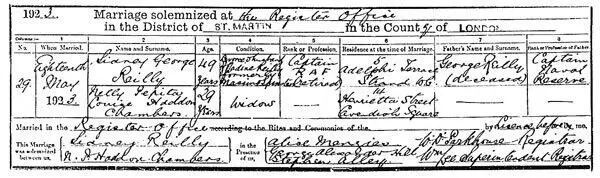 1923. Marriage solemnized at the Register Office
in the District of ST. MARTIN in the County of LONDON
Columns:— 1 2 3 4 5 6 7 8
No. When Married. Name and Surname. Age Condition. Rank or Profession. Residence at the time of Marriage. Father's Name and Surname. Rank or Profession of Father.
29. Eighteenth May 1923
Sidney George Reilly 49 years formerly Captain RAF retired 5 Adelphi Terrace Strand W.C. George Reilly (deceased) Captain Naval Reserve
Nelly Pepita Louise Haddon Chambers. 29 years Widow Harrietta Street Cavendish Square
Married in the Register Office according to the Rites and Ceremonies of the by Licence before me,
This Marriage was solemnized between us, Sidney Reilly
N. P. Haddon Chambers. in the Presence of us, Alice Menzies
George Alexander Hill
Stephen Alley
W. Parkhouse Registrar
Superintendent Registrar